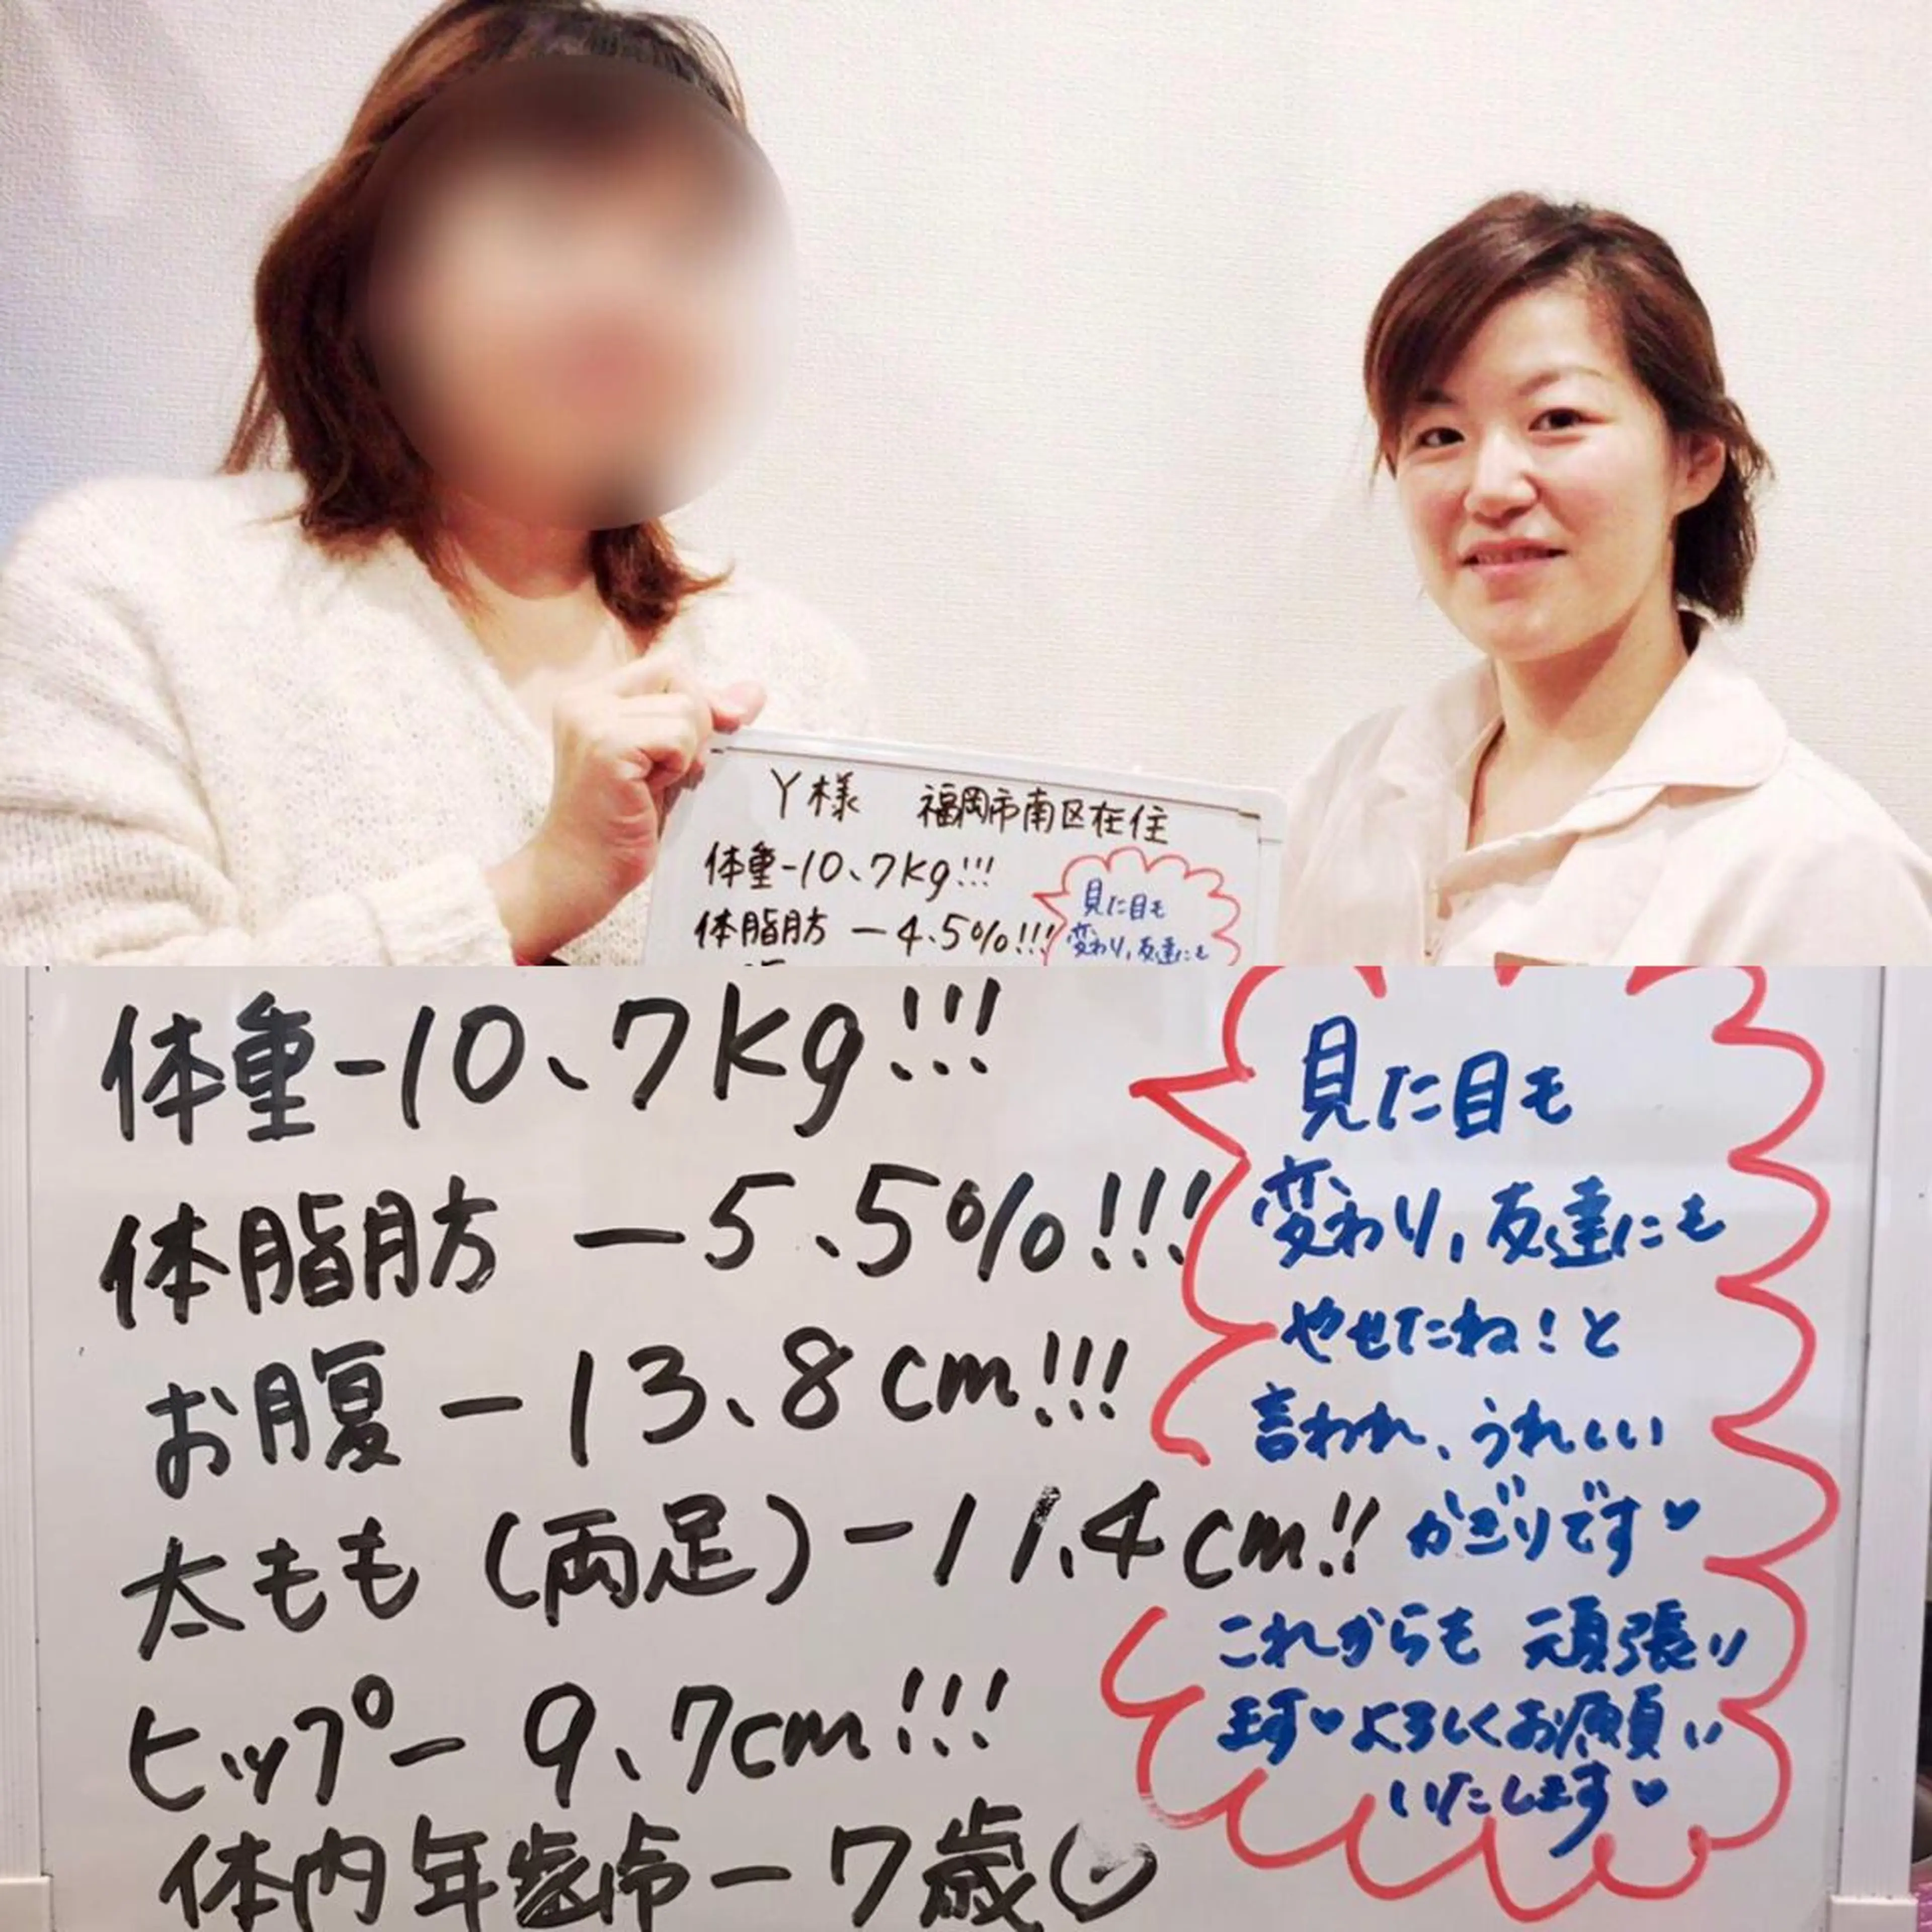 Y様 福岡市南区在住
体重-10、7kg!!!
体脂肪 -4、5%!!!
見た目も
変わり,友達にも
体重-10、7kg!!!
体脂肪 -5、5%!!!
お腹-13、8cm!!!
太もも(両足)-11.4cm!!
ヒップ- 9、7cm!!!
体内年齢-7歳
見た目も
変わり,友達にも
やせたね!と
言われ、うれしい
かぎりです♥
これからも 頑張り
ます♥よろしくお願い
いたします♥